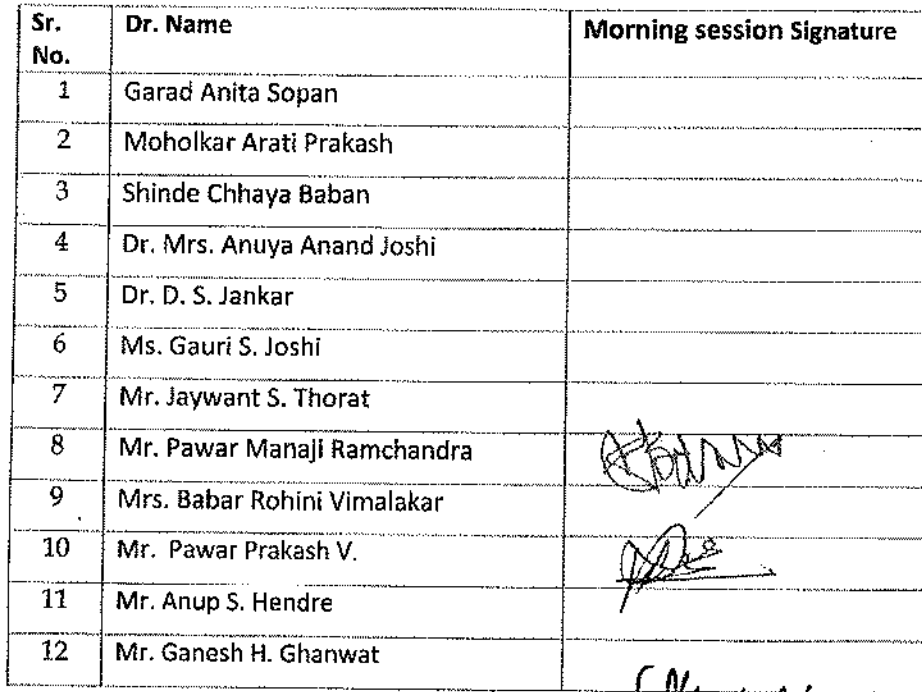 Sr. No. Dr. Name Morning session Signature
1 Garad Anita Sopan
2 Moholkar Arati Prakash
3 Shinde Chhaya Baban
4 Dr. Mrs. Anuya Anand Joshi
5 Dr. D. S. Jankar
6 Ms. Gauri S. Joshi
7 Mr. Jaywant S. Thorat
8 Mr. Pawar Manaji Ramchandra
9 Mrs. Babar Rohini Vimalakar
10 Mr. Pawar Prakash V.
11 Mr. Anup S. Hendre
12 Mr. Ganesh H. Ghanwat